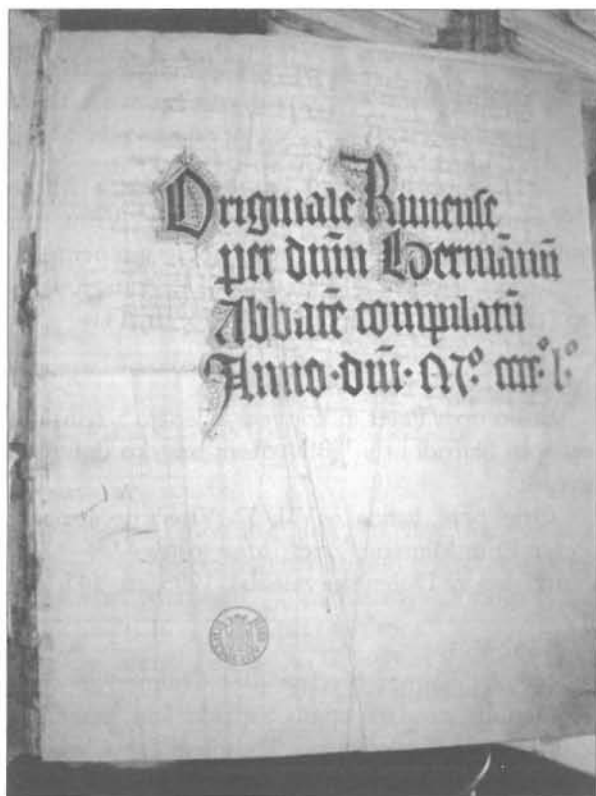 Originale Runense
per dnm̄ Hermānū
Abbatē compilatū
Anno · dm̄i · Mº · cccº · lº